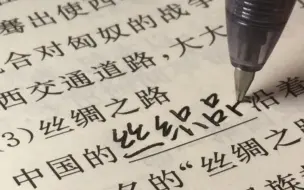 骞出使西
合对匈奴的战争
西交通道路，大大
3)丝绸之路
中国的丝织品沿着
的“丝绸之路